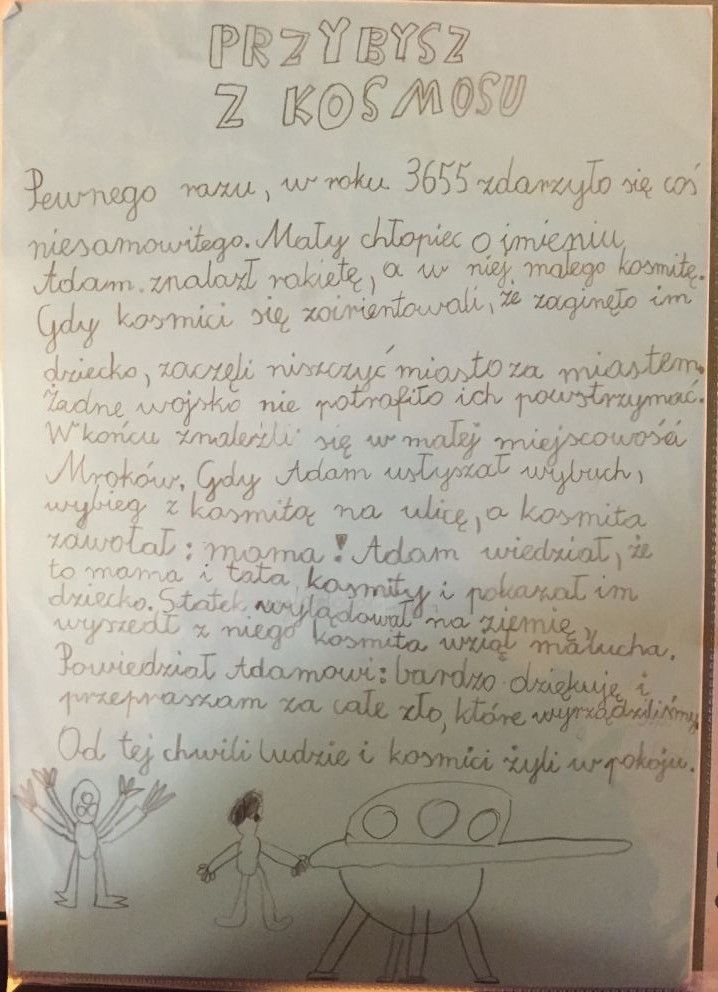 PRZYBYSZ
Z KOSMOSU
Pewnego razu, w roku 3655 zdarzyło się coś
niesamowitego. Mały chłopiec o imieniu
Adam znalazł rakietę, a w niej małego kosmitę.
Gdy kosmici się zoirientowali, że zaginęło im
dziecko, zaczęli niszczyć miasto za miastem.
Żadne wojsko nie potrafiło ich powstrzymać.
W końcu znaleźli się w małej miejscowości
Mroków. Gdy Adam usłyszał wybuch,
wybieg z kosmitą na ulicę, a kosmita
zawołał: mama! Adam wiedział, że
to mama i tata kosmity i pokazał im
dziecko. Statek wylądował na ziemię,
wyszedł z niego kosmita wziął malucha.
Powiedział Adamowi: bardzo dziękuję i
przepraszam za całe zło, które wyrządziliśmy
Od tej chwili ludzie i kosmici żyli w pokoju.